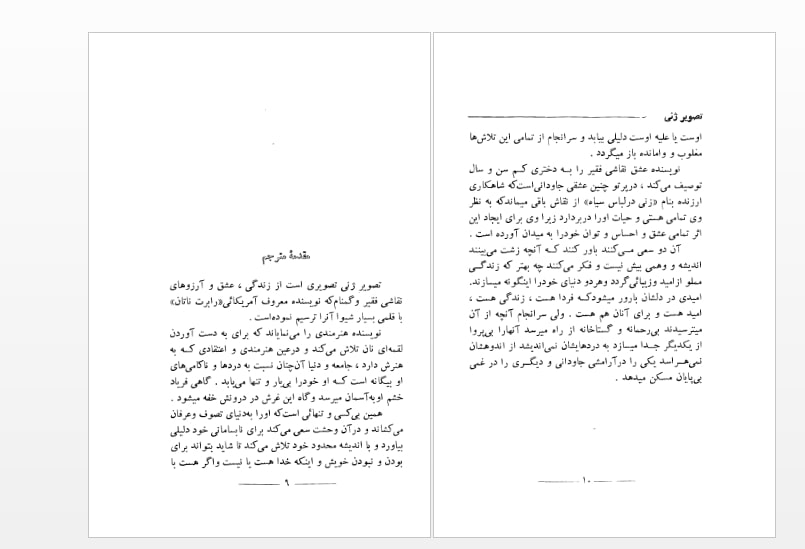 مقدمهٔ مترجم
تصویر ژنی تصویری است از زندگی ، عشق و آرزوهای
نقاشی فقیر وگمنام‌که نویسنده معروف آمریکائی«رابرت ناتان»
با قلمی بسیار شیوا آنرا ترسیم نموده‌است .
نویسنده هنرمندی را می‌نمایاند که برای به دست آوردن
لقمه‌ای نان تلاش می‌کند و درعین هنرمندی و اعتقادی کـه به
هنرش دارد ، جامعه و دنیا آن‌چنان نسبت به دردها و ناکامی‌های
او بیگانه است کـه او خودرا بی‌یار و تنها می‌یابد . گاهی فریاد
خشم اوبه‌آسمان میرسد وگاه این غرش در درونش خفه میشود .
همین بی‌کسی و تنهائی است‌که اورا به‌دنیای تصوف وعرفان
می‌کشاند و درآن وحشت سعی می‌کند برای نابسامانی خود دلیلی
بیاورد و با اندیشه محدود خود تلاش می‌کند تا شاید بتواند برای
بودن و نبودن خویش و اینکه خدا هست یا نیست واگر هست با
۹
تصویر ژنی
اوست یا علیه اوست دلیلی بیابد و سرانجام از تمامی این تلاش‌ها
مغلوب و وامانده باز میگردد .
نویسنده عشق نقاشی فقیر را بـه دختری کـم سن و سال
توصیف می‌کند ، درپرتو چنین عشقی جاودانی‌است‌که شاهکاری
ارزنده بنام «زنی درلباس سیاه» از نقاش باقی میماندکه به نظر
وی تمامی هستی و حیات اورا دربردارد زیرا وی برای ایجاد این
اثر تمامی عشق و احساس و توان خودرا به میدان آورده است .
آن دو سعی مـی‌کنند باور کنند کـه آنچه زشت می‌بینند
اندیشه و وهمی بیش نیست و فکر می‌کنند چه بهتر که زندگـی
مملو ازامید وزیبائی‌گردد وهردو دنیای خودرا اینگونه میسازند.
امیدی در دلشان بارور میشودکـه فردا هست ، زندگی هست ،
امید هست و برای آنان هم هست . ولی سرانجام آنچه از آن
میترسیدند بی‌رحمانه و گستاخانه از راه میرسد آنهارا بی‌پروا
از یکدیگر جـدا میسازد به دردهایشان نمی‌اندیشد از اندوهشان
نمی‌هـراسد یکی را درآرامشی جاودانی و دیگـری را در غمی
بی‌پایان مسکن میدهد .
۱۰